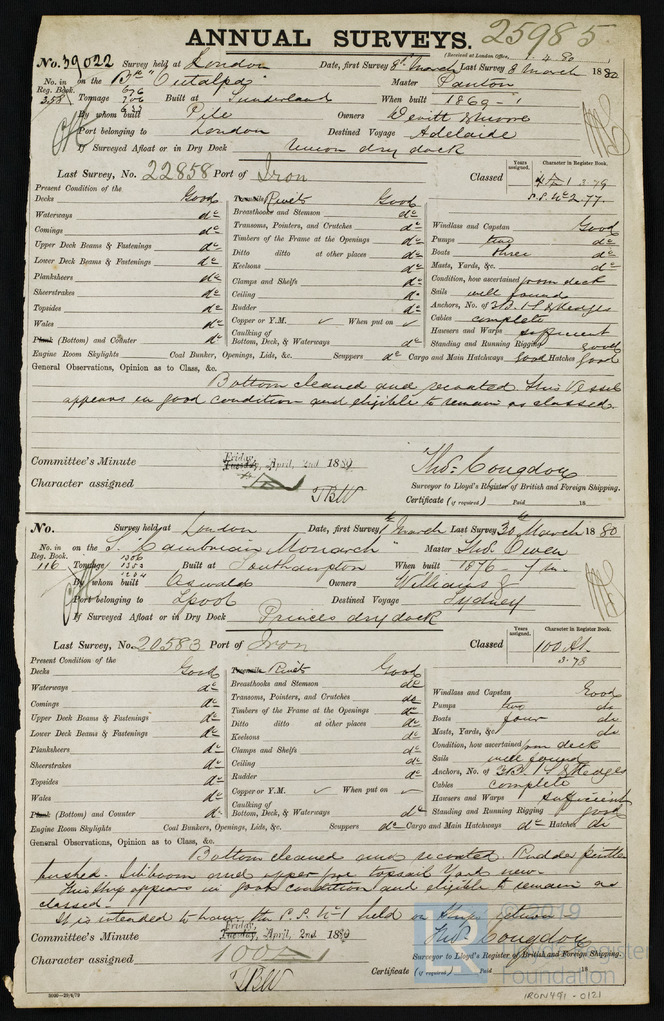 ANNUAL SURVEYS. 25985
(Received at London Office, 1.4.80
No. 39022 Survey held at London Date, first Survey 8th March Last Survey 8 March 1880
No. in Reg. Book. 358 on the Bk "Cutalpa" Master Panton
Tonnage 676 706 Built at Sunderland When built 1869
By whom built Pile Owners Devitt & Moore
Port belonging to London Destined Voyage Adelaide
If Surveyed Afloat or in Dry Dock Union dry dock
Last Survey, No. 22858 Port of Iron Classed
Years assigned. Character in Register Book.
1 3.79
S.S. No 2.77.
Present Condition of the
Decks Good
Waterways do
Comings do
Upper Deck Beams & Fastenings do
Lower Deck Beams & Fastenings do
Planksheers do
Sheerstrakes do
Topsides do
Wales do
Plank (Bottom) and Counter do
Treenails Rivets Good
Breasthooks and Stemson do
Transoms, Pointers, and Crutches do
Timbers of the Frame at the Openings do
Ditto ditto at other places do
Keelsons do
Clamps and Shelfs do
Ceiling do
Rudder do
Copper or Y.M. ✓ When put on ✓
Caulking of Bottom, Deck, & Waterways do
Windlass and Capstan Good
Pumps two do
Boats three do
Masts, Yards, &c. do
Condition, how ascertained from deck
Sails well found
Anchors, No. of 3B. 1S. & 2 Kedges
Cables complete
Hawsers and Warps sufficient
Standing and Running Rigging good
Engine Room Skylights Coal Bunker, Openings, Lids, &c. Scuppers do Cargo and Main Hatchways good Hatches good
General Observations, Opinion as to Class, &c.
Bottom cleaned and recoated. This Vessel
appears in good condition and eligible to remain as classed.
Committee's Minute Friday Tuesday, April, 2nd 1880
Thos. Congdon
Character assigned
Surveyor to Lloyd's Register of British and Foreign Shipping.
Certificate (if required) Paid 18
No. Survey held at London Date, first Survey 1st March Last Survey 30th March 1880
No. in Reg. Book. 116 on the S. "Cambrian Monarch" Master Thos. Owen
Tonnage 1306 1352 1264 Built at Southampton When built 1876 - 7m.
By whom built Oswald Owners Williams &
Port belonging to Lpool Destined Voyage Sydney
If Surveyed Afloat or in Dry Dock Princes dry dock
Last Survey, No. 20583 Port of Iron Classed
Years assigned. Character in Register Book.
100 A1.
3.78
Present Condition of the
Decks Good
Waterways do
Comings do
Upper Deck Beams & Fastenings do
Lower Deck Beams & Fastenings do
Planksheers do
Sheerstrakes do
Topsides do
Wales do
Plank (Bottom) and Counter do
Treenails Rivets Good
Breasthooks and Stemson do
Transoms, Pointers, and Crutches do
Timbers of the Frame at the Openings do
Ditto ditto at other places do
Keelsons do
Clamps and Shelfs do
Ceiling do
Rudder do
Copper or Y.M. ✓ When put on ✓
Caulking of Bottom, Deck, & Waterways do
Windlass and Capstan Good
Pumps two do
Boats four do
Masts, Yards, &c do
Condition, how ascertained from deck
Sails well found
Anchors, No. of 3B. 1S & 2 Kedges
Cables complete
Hawsers and Warps sufficient
Standing and Running Rigging good
Engine Room Skylights Coal Bunkers, Openings, Lids, &c. Scuppers do Cargo and Main Hatchways do Hatches do
General Observations, Opinion as to Class, &c.
Bottom cleaned and recoated. Rudder pintles
bushed. Jibboom and upper fore topsail Yard new.
This ship appears in good condition and eligible to remain as
classed.
It is intended to have the S.S. No 1 held on Ships return
Committee's Minute Friday, Tuesday, April, 2nd 1880
Thos. Congdon
Character assigned 100A1
Surveyor to Lloyd's Register of British and Foreign Shipping.
Certificate (if required) Paid 18
© 2019
LR
Register
Foundation
IRON491-0121